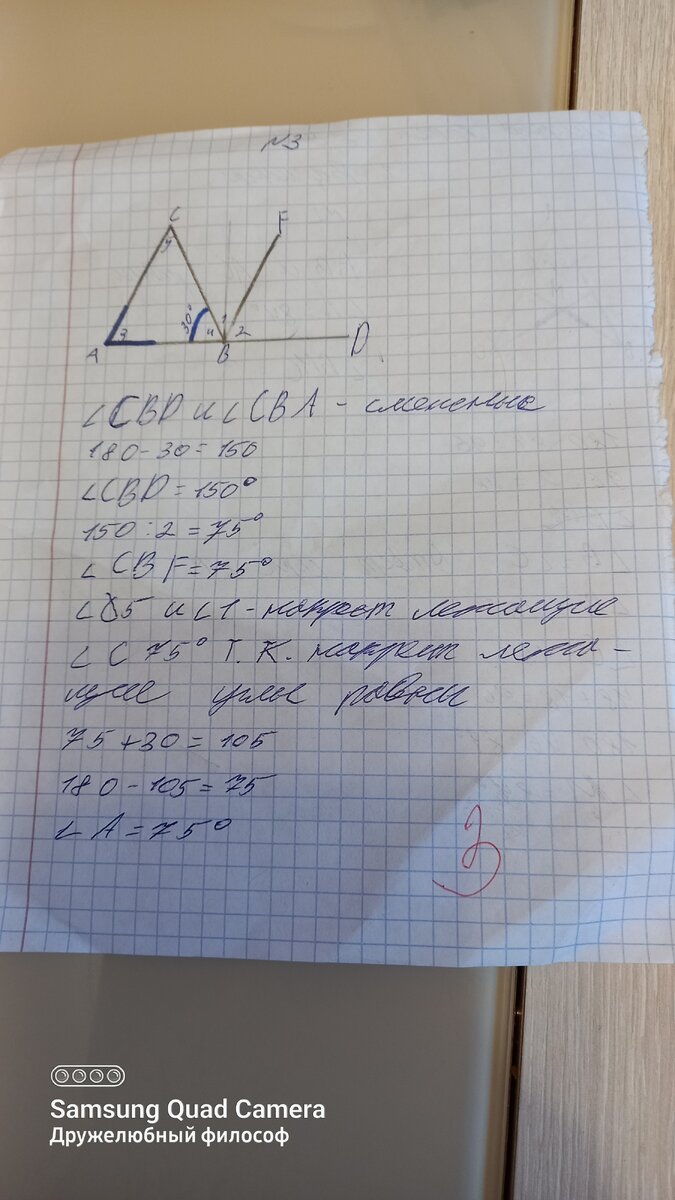 №3
C
F
5
30°
3
4
1
2
A
B
D
∠CBD и ∠CBA - смежные
180-30=150
∠CBD=150°
150:2=75°
∠CBF=75°
∠5 и ∠1 - накрест лежащие
∠C 75° т.к. накрест лежа-
щие углы равны
75+30=105
180-105=75
∠A=75°
3
Samsung Quad Camera
Дружелюбный философ